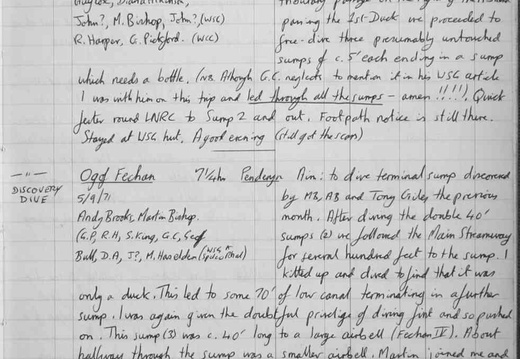 John?, M. Bishop, John? (WSG)
R. Harper, G. Pickford. (WSG)
passing the 1st Duck we proceeded to
free-dive three presumably untouched
sumps of c.5' each ending in a sump
which needs a bottle. (NB. Although G.C. neglects to mention it in his WSG article
I was with him on this trip and led through all the sumps – amen !!!!). Quick
round LNRC to Sump 2 and out. Footpath notice is still there.
Stayed at WSG hut. A good evening (still got the scars)
DISCOVERY
DIVE
Ogof Fechan 7¼hr Penderyn
5/9/71
Andy Brooks, Martin Bishop.
(G.P, R.H, S.King, G.C, Geoff
Ball, D.A, J?, M. Haselden (WSG
Aim: to dive terminal sump discovered
by MB, AB and Tony Giles the previous
month. After diving the double 40'
sumps (2) we followed the Main Streamway
for several hundred feet to the sump. I
kitted up and dived to find that it was
only a duck. This led to some 70' of low canal terminating in a further
sump. I was again given the doubtful privilege of diving first and so pushed
on. This sump (3) was c. 40' long to a large airbell (Fechan IV). About
halfway through the sump was a smaller airbell. Martin joined me and